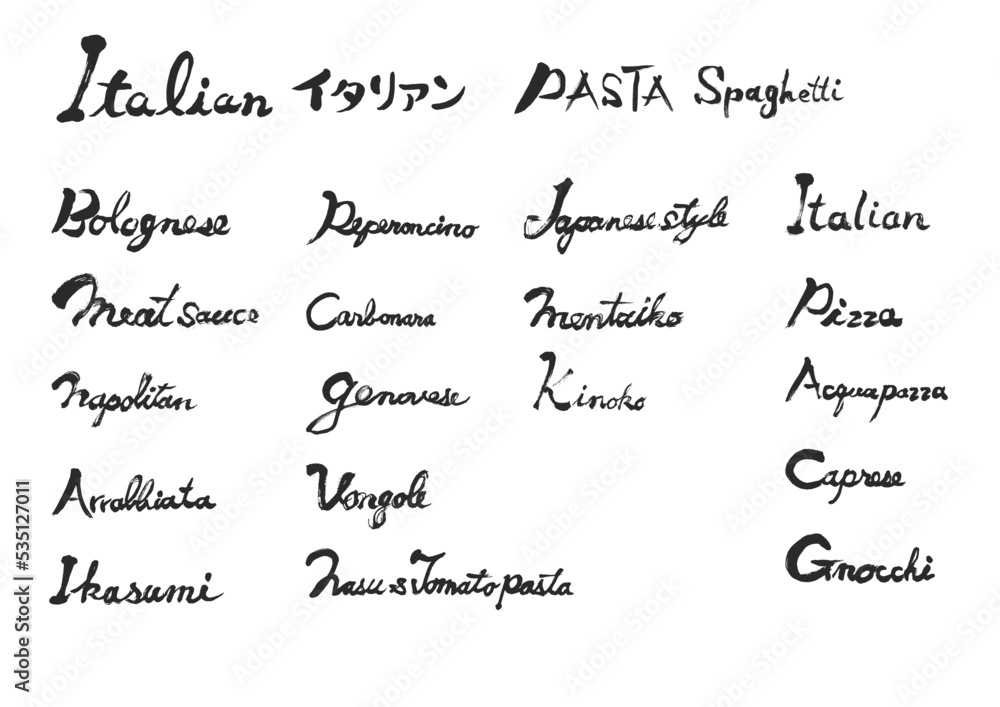 Italian イタリアン PASTA Spaghetti
Bolognese Peperoncino Japanese style Italian
Meat sauce Carbonara Mentaiko Pizza
Napolitan Genovese Kinoko Acquapazza
Arrabbiata Vongole Caprese
Ikasumi Nasu&Tomato pasta Gnocchi
Adobe Stock | #535127011